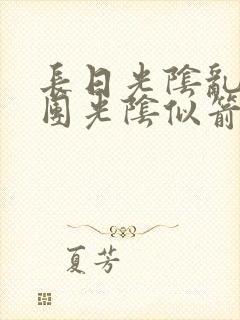 長日光陰亂
園光陰似箭
夏芳